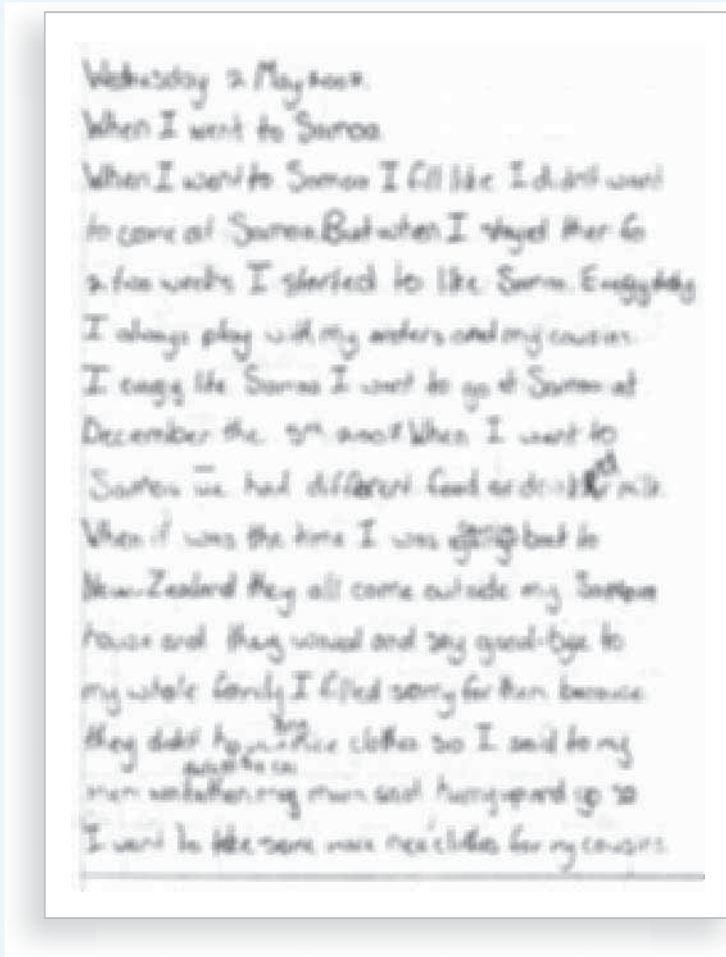 Wednesday 2 May
When I went to Samoa
When I went to Samoa I fill like I didn't want
to come at Samoa. But when I stayed ther fo
2 two weeks I started to like Samoa.
I always play with my and my cousins.
I like Samoa I want to go at Samoa at
December the When I went to
Samoa we had different food or drink milk.
When it was the time I was back to
New Zealand they all come outside my Samoan
house and they waved and say good-bye to
my whole family I filled sorry for them because
they didn't nice clothes so I said to my
mum my mum said hurry up and go so
I want to take some more new clothes for my cousins